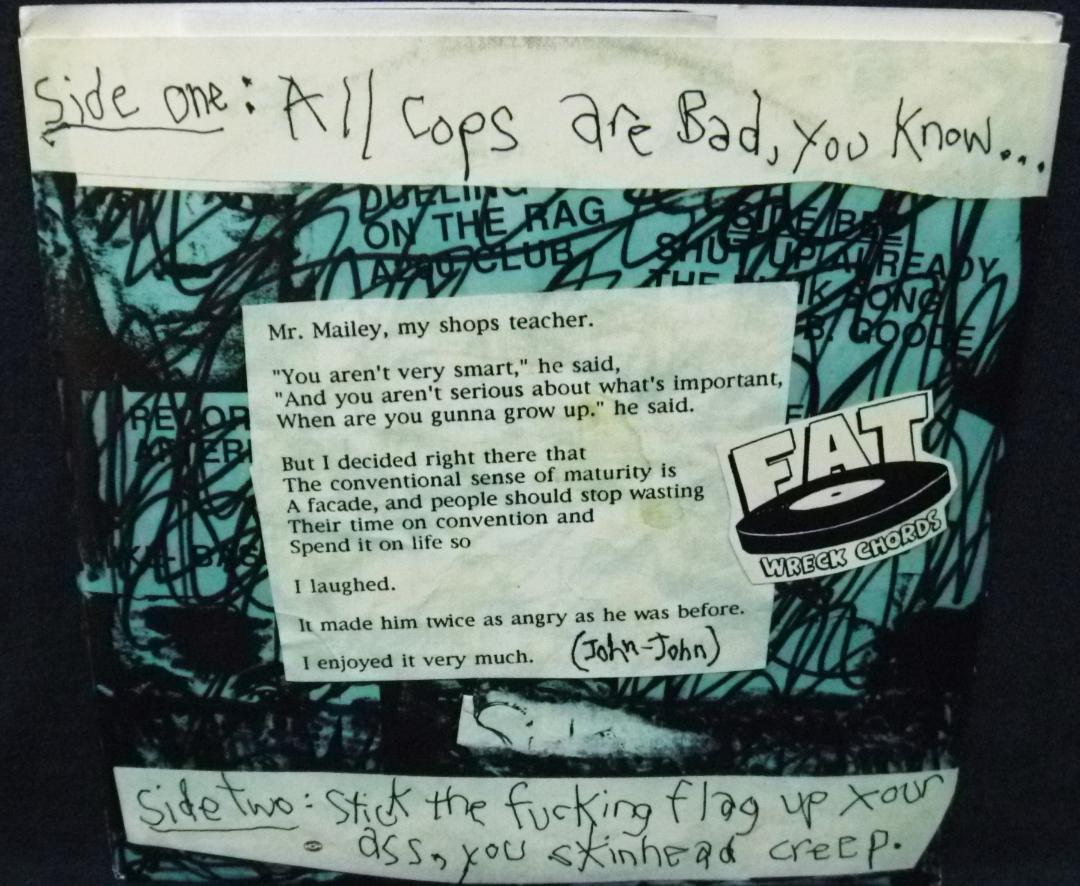 Side one: All Cops are Bad, you Know...
DUELING
ON THE RAG
CLUB
SIDE BEE
SHUT UP ALREADY
THE SONG
B. GOODE
Mr. Mailey, my shops teacher.
"You aren't very smart," he said,
"And you aren't serious about what's important,
When are you gunna grow up." he said.
But I decided right there that
The conventional sense of maturity is
A facade, and people should stop wasting
Their time on convention and
Spend it on life so
I laughed.
It made him twice as angry as he was before.
I enjoyed it very much. (John-John)
FAT
WRECK CHORDS
Side two: Stick the fucking flag up your
ass, you skinhead creep.